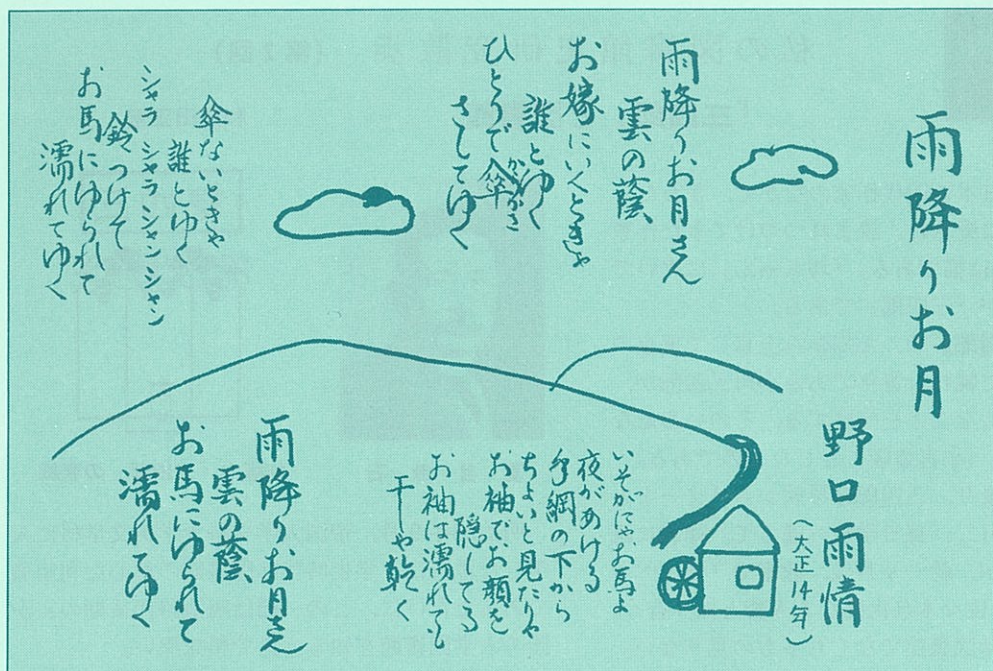 雨降りお月
野口雨情
(大正14年)
雨降りお月さん
雲の蔭
お嫁にいくときゃ
誰とゆく
ひとりで傘
かゝかさ
さしてゆく
傘ないときゃ
誰とゆく
シャラ シャラ シャン シャン
鈴つけて
お馬にゆられて
濡れてゆく
いそがにゃお馬よ
夜があける
手綱の下から
ちょいと見たりゃ
お袖でお顔を
隠してる
お袖は濡れても
干しゃ乾く
雨降りお月さん
雲の蔭
お馬にゆられて
濡れてゆく